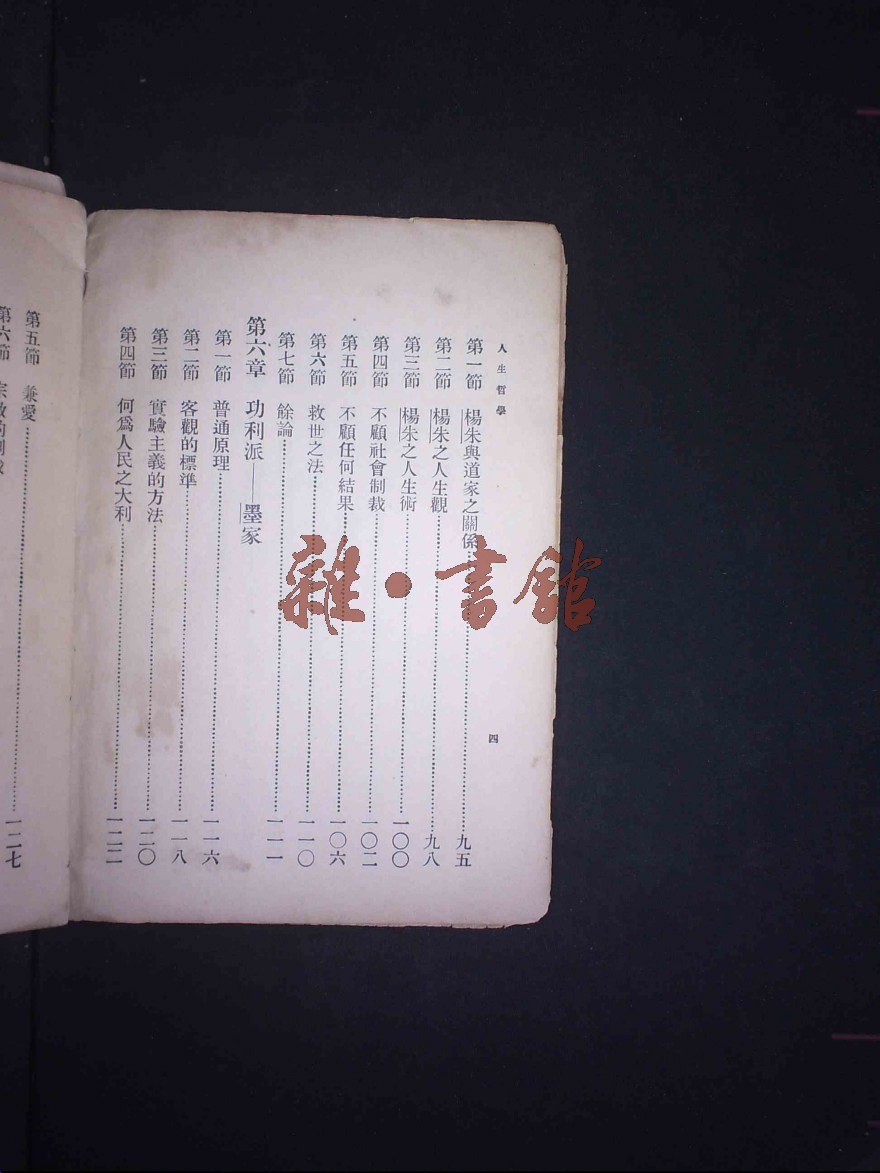 人生哲學
四
第一節 楊朱與道家之關係……九五
第二節 楊朱之人生觀……九八
第三節 楊朱之人生術……一〇〇
第四節 不顧社會制裁……一〇二
第五節 不顧任何結果……一〇六
第六節 救世之法……一一〇
第七節 餘論……一一一
第六章 功利派——墨家
第一節 普通原理……一一六
第二節 客觀的標準……一一八
第三節 實驗主義的方法……一二〇
第四節 何爲人民之大利……一二二
第五節 兼愛……一二七
第六節
雜·書館